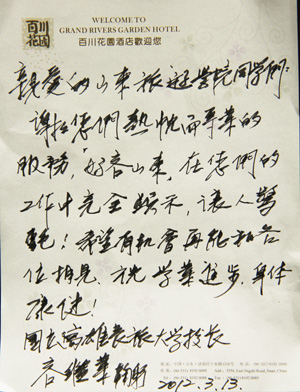 百川
花園
WELCOME TO
GRAND RIVERS GARDEN HOTEL
百川花園酒店歡迎您
親愛的山東旅遊學院同學們:
謝謝您們熱忱而專業的
服務,好客山東,在您們的
工作中完全顯示,讓人驚
艷!希望有機會再能和各
位相見,祝學業進步,身體
康健!
國立高雄餐旅大學校長
容繼業 鞠躬
2012.3.13.